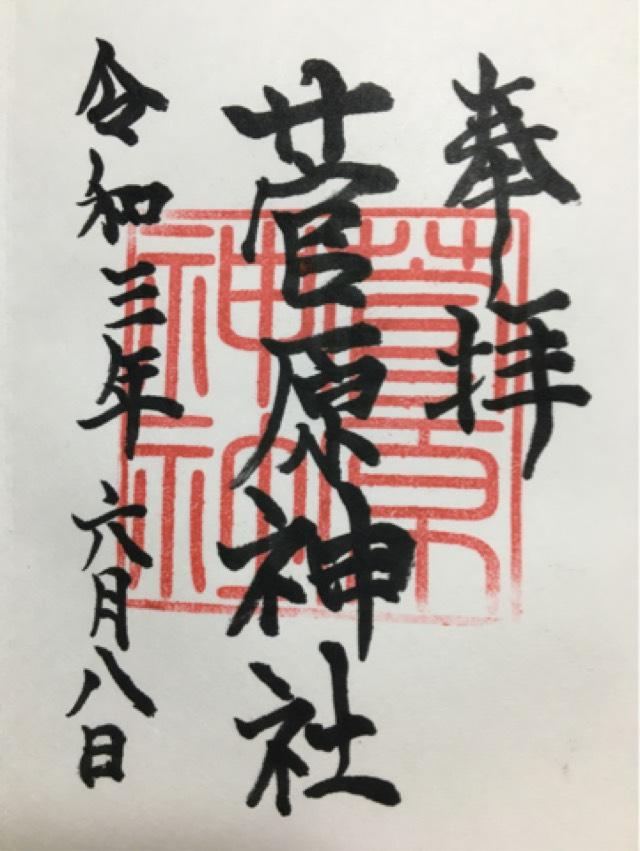 奉拝
菅原神社
菅原神社
令和三年六月八日